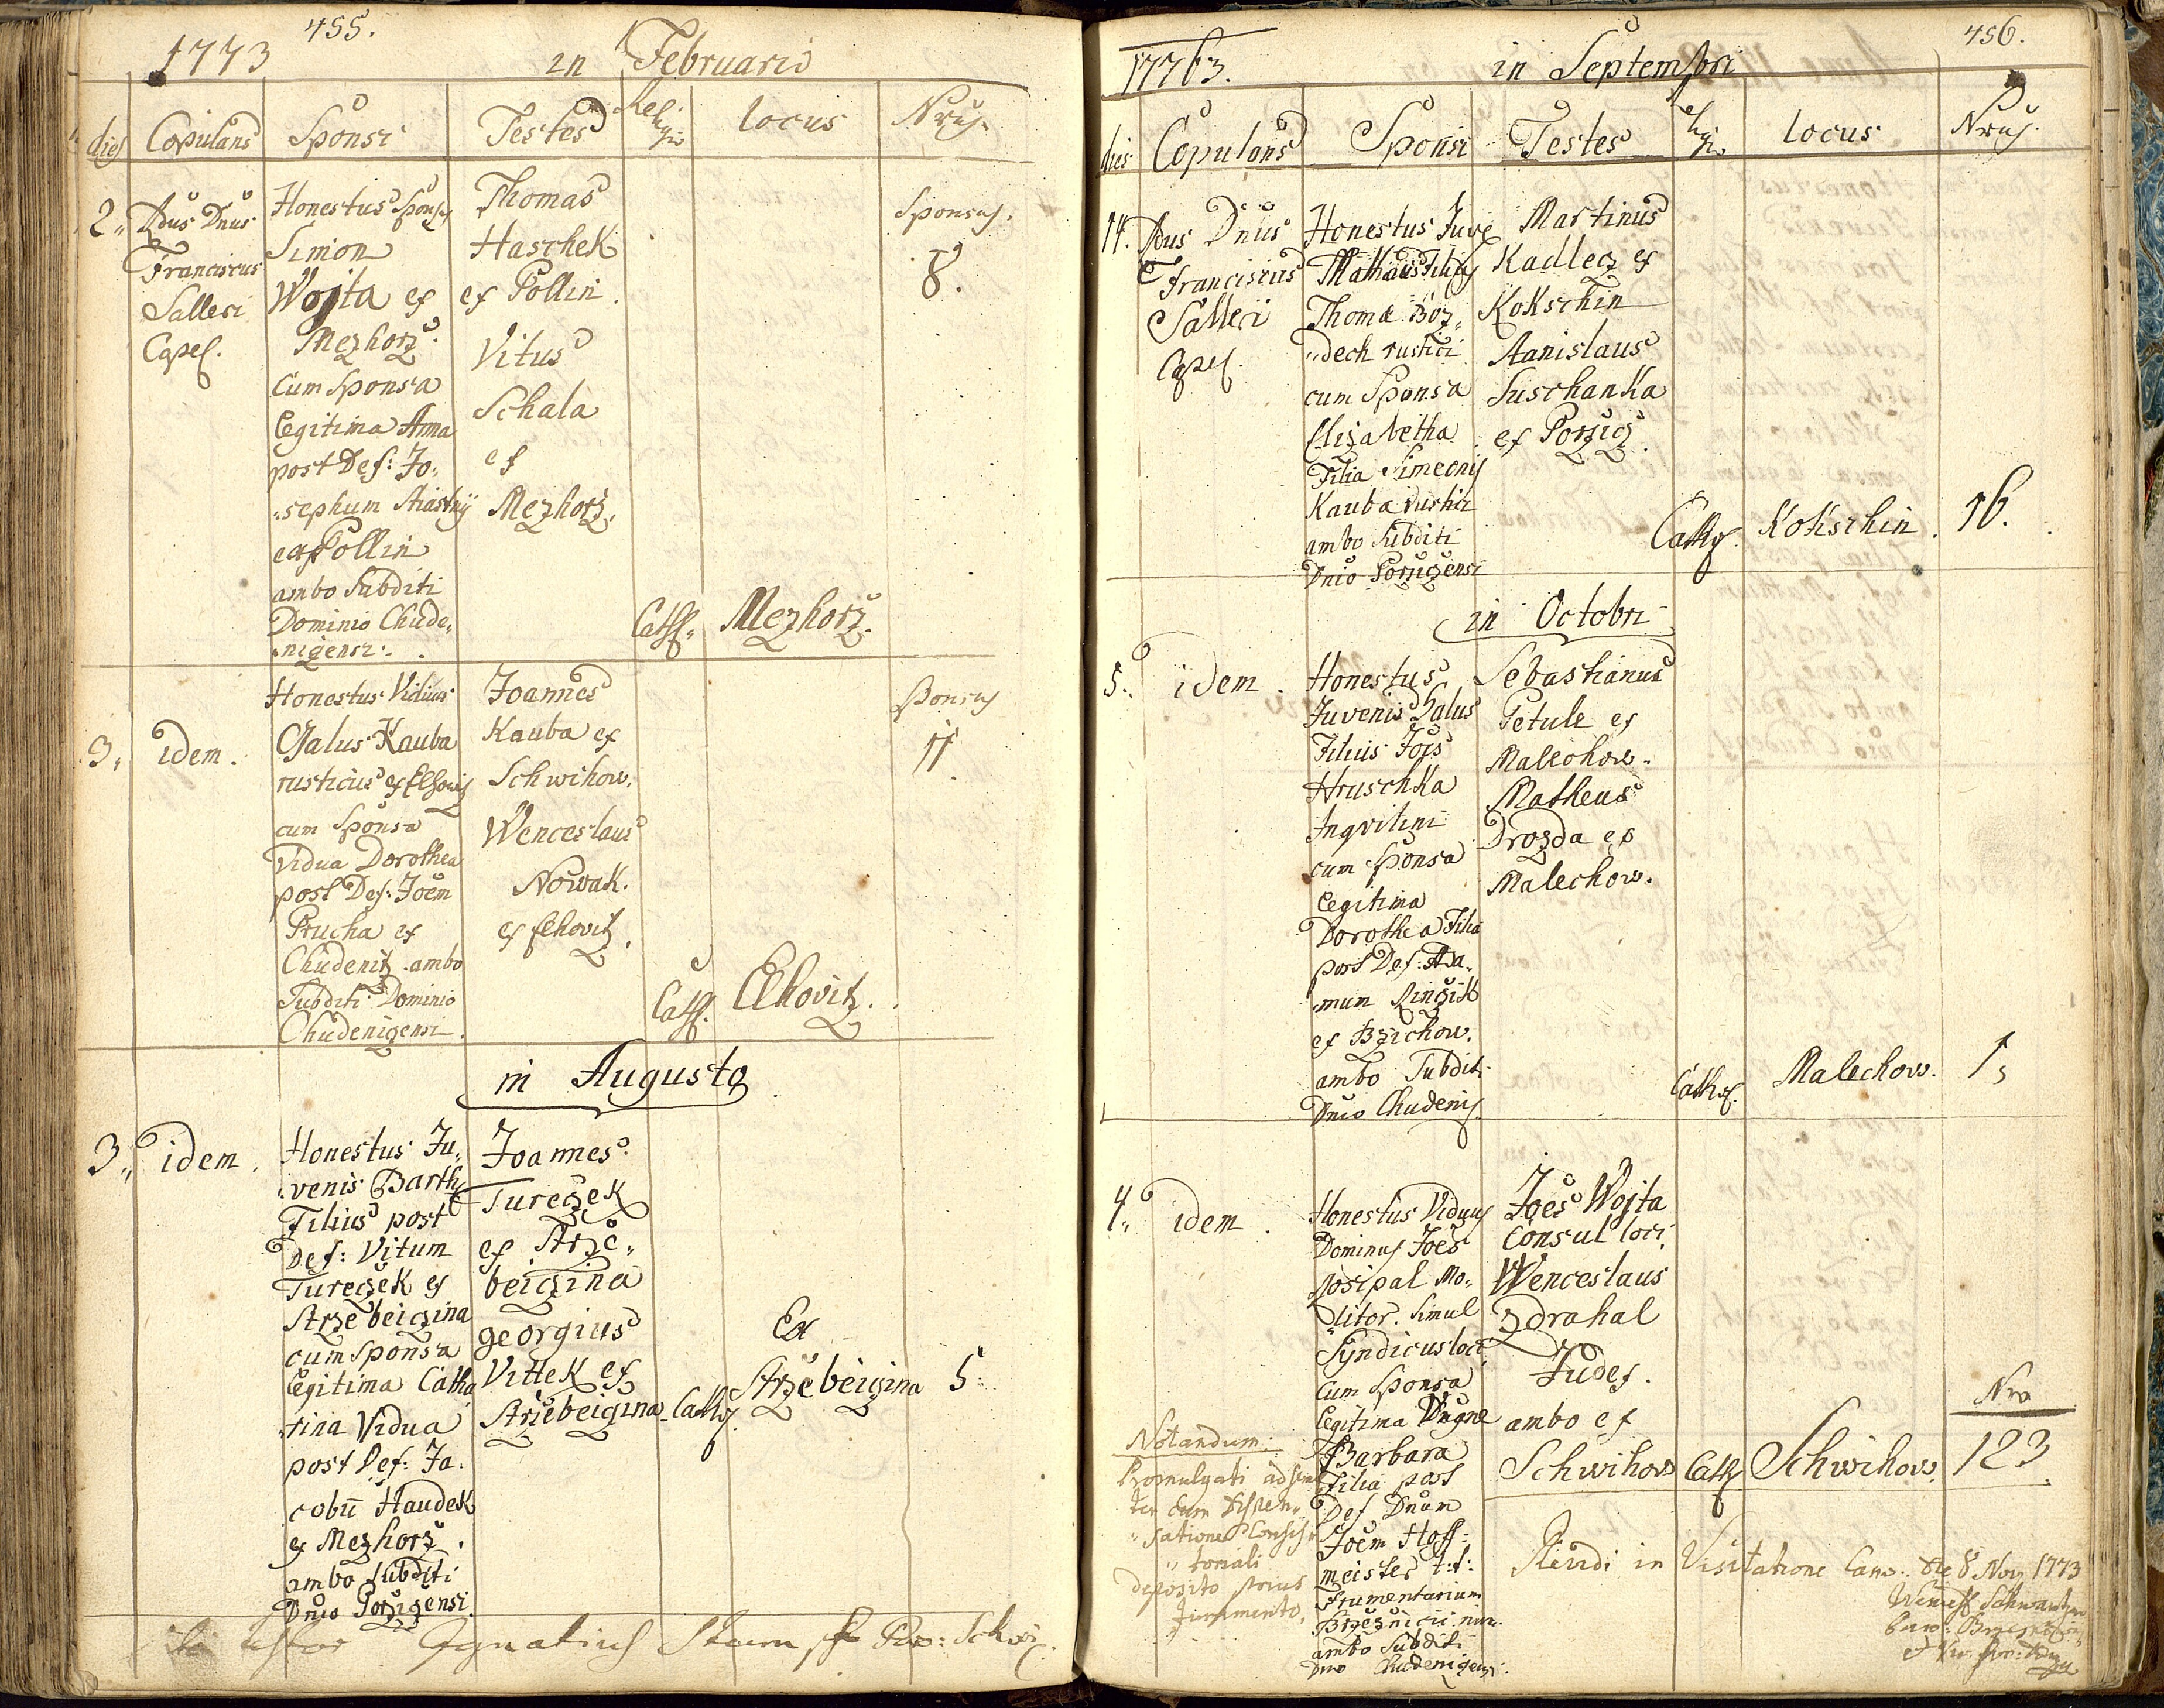 455.
1773
in Februario
dies Copulans Sponsi Testes Religio locus Nrus.
2. Rdus Dnus
Franciscus
Salleri
Capel.
Honestus Sponsus
Simon
Wojta ex
Mezhorz
cum Sponsa
legitima Anna
post Def: Jo,
sephum
ex Pollin
ambo Subditi
Dominio Chude,
nizensi.
Thomas
Haschek
ex Pollin.
Vitus
Schala
ex
Mezhorz.
Cath. Mezhorz.
Sponsus.
8.
3, idem.
Honestus Viduus
Galus Kauba
rusticus ex
cum Sponsa
Vidua Dorothea
post Def: Joem
Prucha ex
Chudenitz. ambo
Subditi Dominio
Chudenizensi.
Joannes
Kauba ex
Schwihow.
Wenceslaus
Nowak.
ex Elhovitz.
Cath. Elhovitz.
Sponsus
11.
in Augusto
3, idem.
Honestus Ju,
venis Barth
Filius post
Def: Vitum
Tureczek ex
Strzebeiczina
cum Sponsa
legitima Catha
rina Vidua
post Def: Ja.
cobu Haudek
ex Mezhorz.
ambo Subditi
Dnio Porzizensi
Joannes
Tureczek
ex Strze,
beiczina
georgius
Vittek ex
Strzebeiczina
Cath.
Ex
Strzebeiczina
5.
Ita testor Ignatius Par: Schwi.
456.
1773.
in Septembri
dies Copulans Sponsi Testes Religio locus Nrus.
14. Rdus Dnus
Franciscus
Salleri
Capel.
Honestus Juve
Mathaus Filius
Thomae Boz,
dech rustici
cum Sponsa
Elizabetha
Filia Simeonis
Kauba rustici
ambo Subditi
Dnio Porzizensi
Martinus
Kadlecz ex
Kokschin
Stanislaus
Suschanka
ex Porzicz.
Cath. Kokschin. 16.
in Octobri
5. idem.
Honestus
Juvenis Galus
Filius Jois
Hruschka
Inqvilini
cum Sponsa
legitima
Dorothea Filia
post Def: Ada,
mum
ex Bzichow.
ambo Subditi
Dnio Chudeniz.
Sebastianus
Petule ex
Malechow.
Matheus
Drozda ex
Malechow.
Cath. Malechow. 1,
4, idem.
Honestus Viduus
Dominus Joes
Mo,
litor. simul
Syndicus loci
cum Sponsa
legitima
Barbara
Filia post
Def Dnum
Joem Hoff=
meister t:t:
frumentarium
ambo Subditi
Dnio Chudenizensi.
Joes Wojta
Consul loci,
Wenceslaus
Zdrahal
Judex.
ambo ex
Schwihow
Cath. Schwihow.
Nro
123.
Notandum:
Promulgati ad
cum Dispen,
satione Consis,
toriali
deposito prius
Juramento.
Revidi in Visitatione Can. die 8 Nov 1773